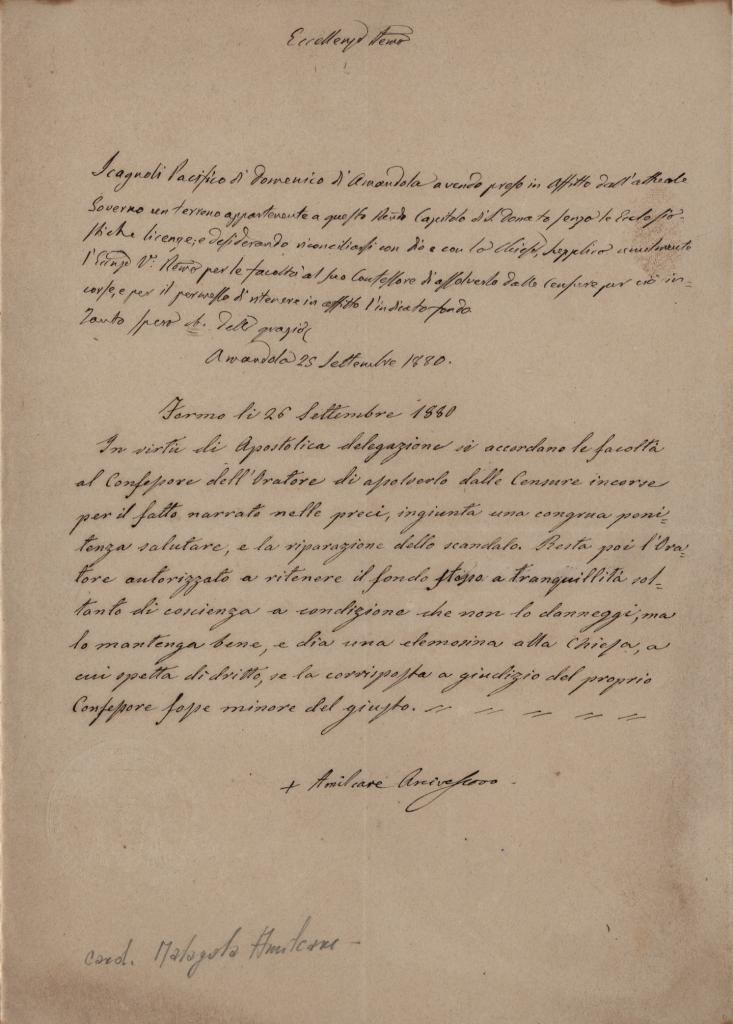 Eccellenza Rẽma
Scagnoli Pacifico di Domenico di Amandola avendo preso in affitto dall'attuale
Governo un terreno appartenente a questo Rẽndo Capitolo di S. Donato senza le Ecclesia-
stiche licenze; e desiderando riconciliarsi con Dio e con la Chiesa, supplica umilmente
l'Eccnza V. Rẽma per le facoltà al suo Confessore di assolverlo dalle Censure per ciò in-
corse, e per il permesso di ritenere in affitto l'indicato fondo.
Tanto spera delle grazie
Amandola 25 Settembre 1880.
Fermo li 26 Settembre 1880
In virtù di Apostolica delegazione si accordano le facoltà
al Confessore dell'Oratore di assolverlo dalle Censure incorse
per il fatto narrato nelle preci, ingiunta una congrua peni-
tenza salutare, e la riparazione dello scandalo. Resta poi l'Ora-
tore autorizzato a ritenere il fondo stesso a tranquillità sol-
tanto di coscienza a condizione che non lo danneggi, ma
lo mantenga bene, e dia una elemosina alla Chiesa, a
cui spetta di dritto, se la corrisposta a giudizio del proprio
Confessore fosse minore del giusto.
+ Amilcare Arcivescovo
card. Malagola Amilcare -